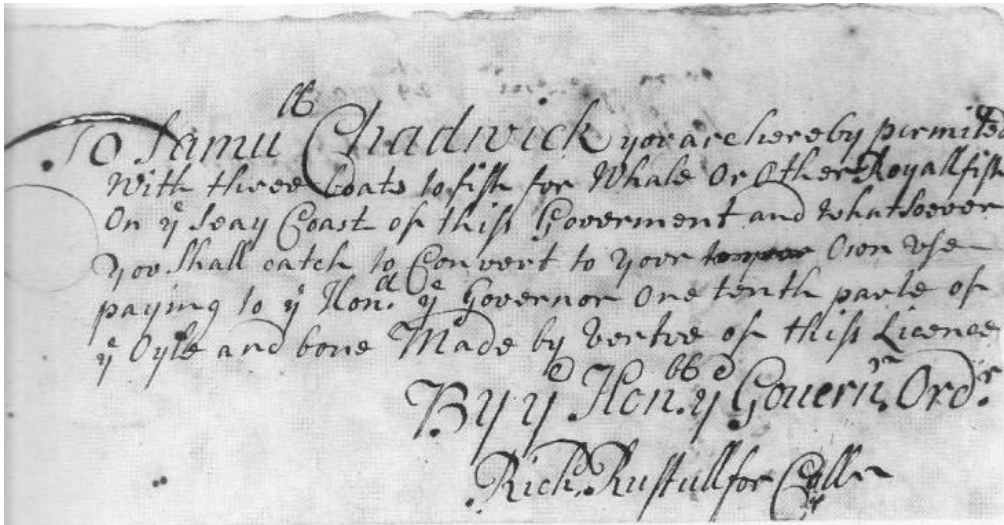 To Samu^ll Chadwick you are hereby permited
With three boats to fish for Whale Or Other Royall fish
On y^e Seay Coast of thiss Goverment and whatsoever
you Shall catch to Convert to your Own vse
paying to y^e Hon.^ll y^e Governor One tenth parte of
y^e Oyle and bone Made by vertve of thiss Licence
By y^e Hon.^ble y^e Gouern.^rs Ord.^r
Rich. Rustull for